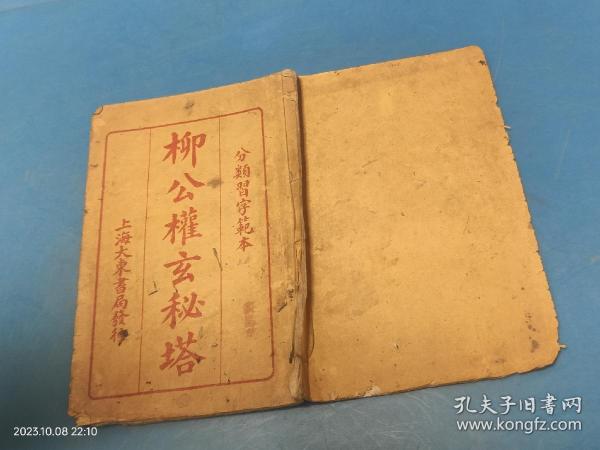 分類習字範本
柳公權玄秘塔
上海大東書局發行
2023.10.08 22:10
孔夫子旧书网
www.kongfz.com